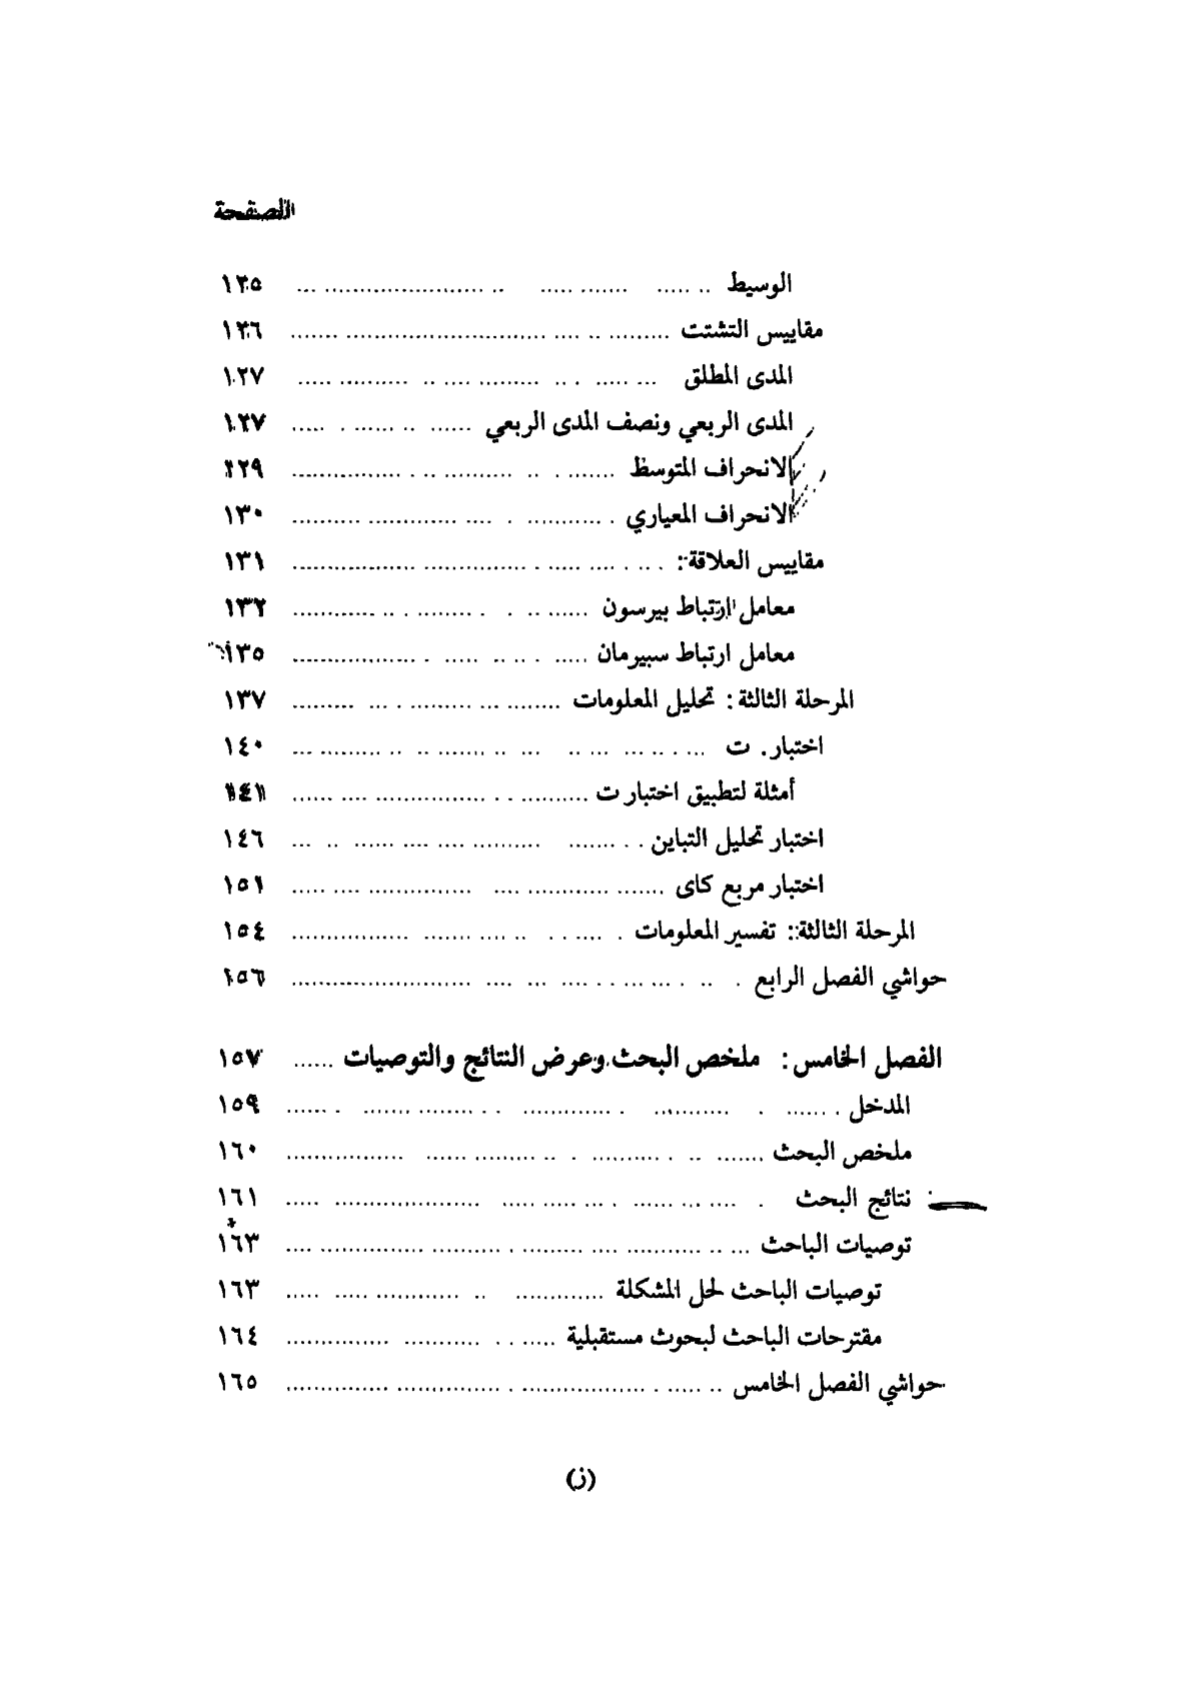 الصفحة
الوسيط ١٢٥
مقاييس التشتت ١٢٦
المدى المطلق ١٢٧
المدى الربعي ونصف المدى الربعي ١٢٧
الانحراف المتوسط ١٢٩
الانحراف المعياري ١٣٠
مقاييس العلاقة: ١٣١
معامل ارتباط بيرسون ١٣٢
معامل ارتباط سبيرمان ١٣٥
المرحلة الثالثة: تحليل المعلومات ١٣٧
اختبار. ت ١٤٠
أمثلة لتطبيق اختبار ت ١٤١
اختبار تحليل التباين ١٤٦
اختبار مربع كاى ١٥١
المرحلة الثالثة: تفسير المعلومات ١٥٤
حواشي الفصل الرابع ١٥٦
الفصل الخامس: ملخص البحث وعرض النتائج والتوصيات ١٥٧
المدخل ١٥٩
ملخص البحث ١٦٠
نتائج البحث ١٦١
توصيات الباحث ١٦٣
توصيات الباحث لحل المشكلة ١٦٣
مقترحات الباحث لبحوث مستقبلية ١٦٤
حواشي الفصل الخامس ١٦٥
(ز)